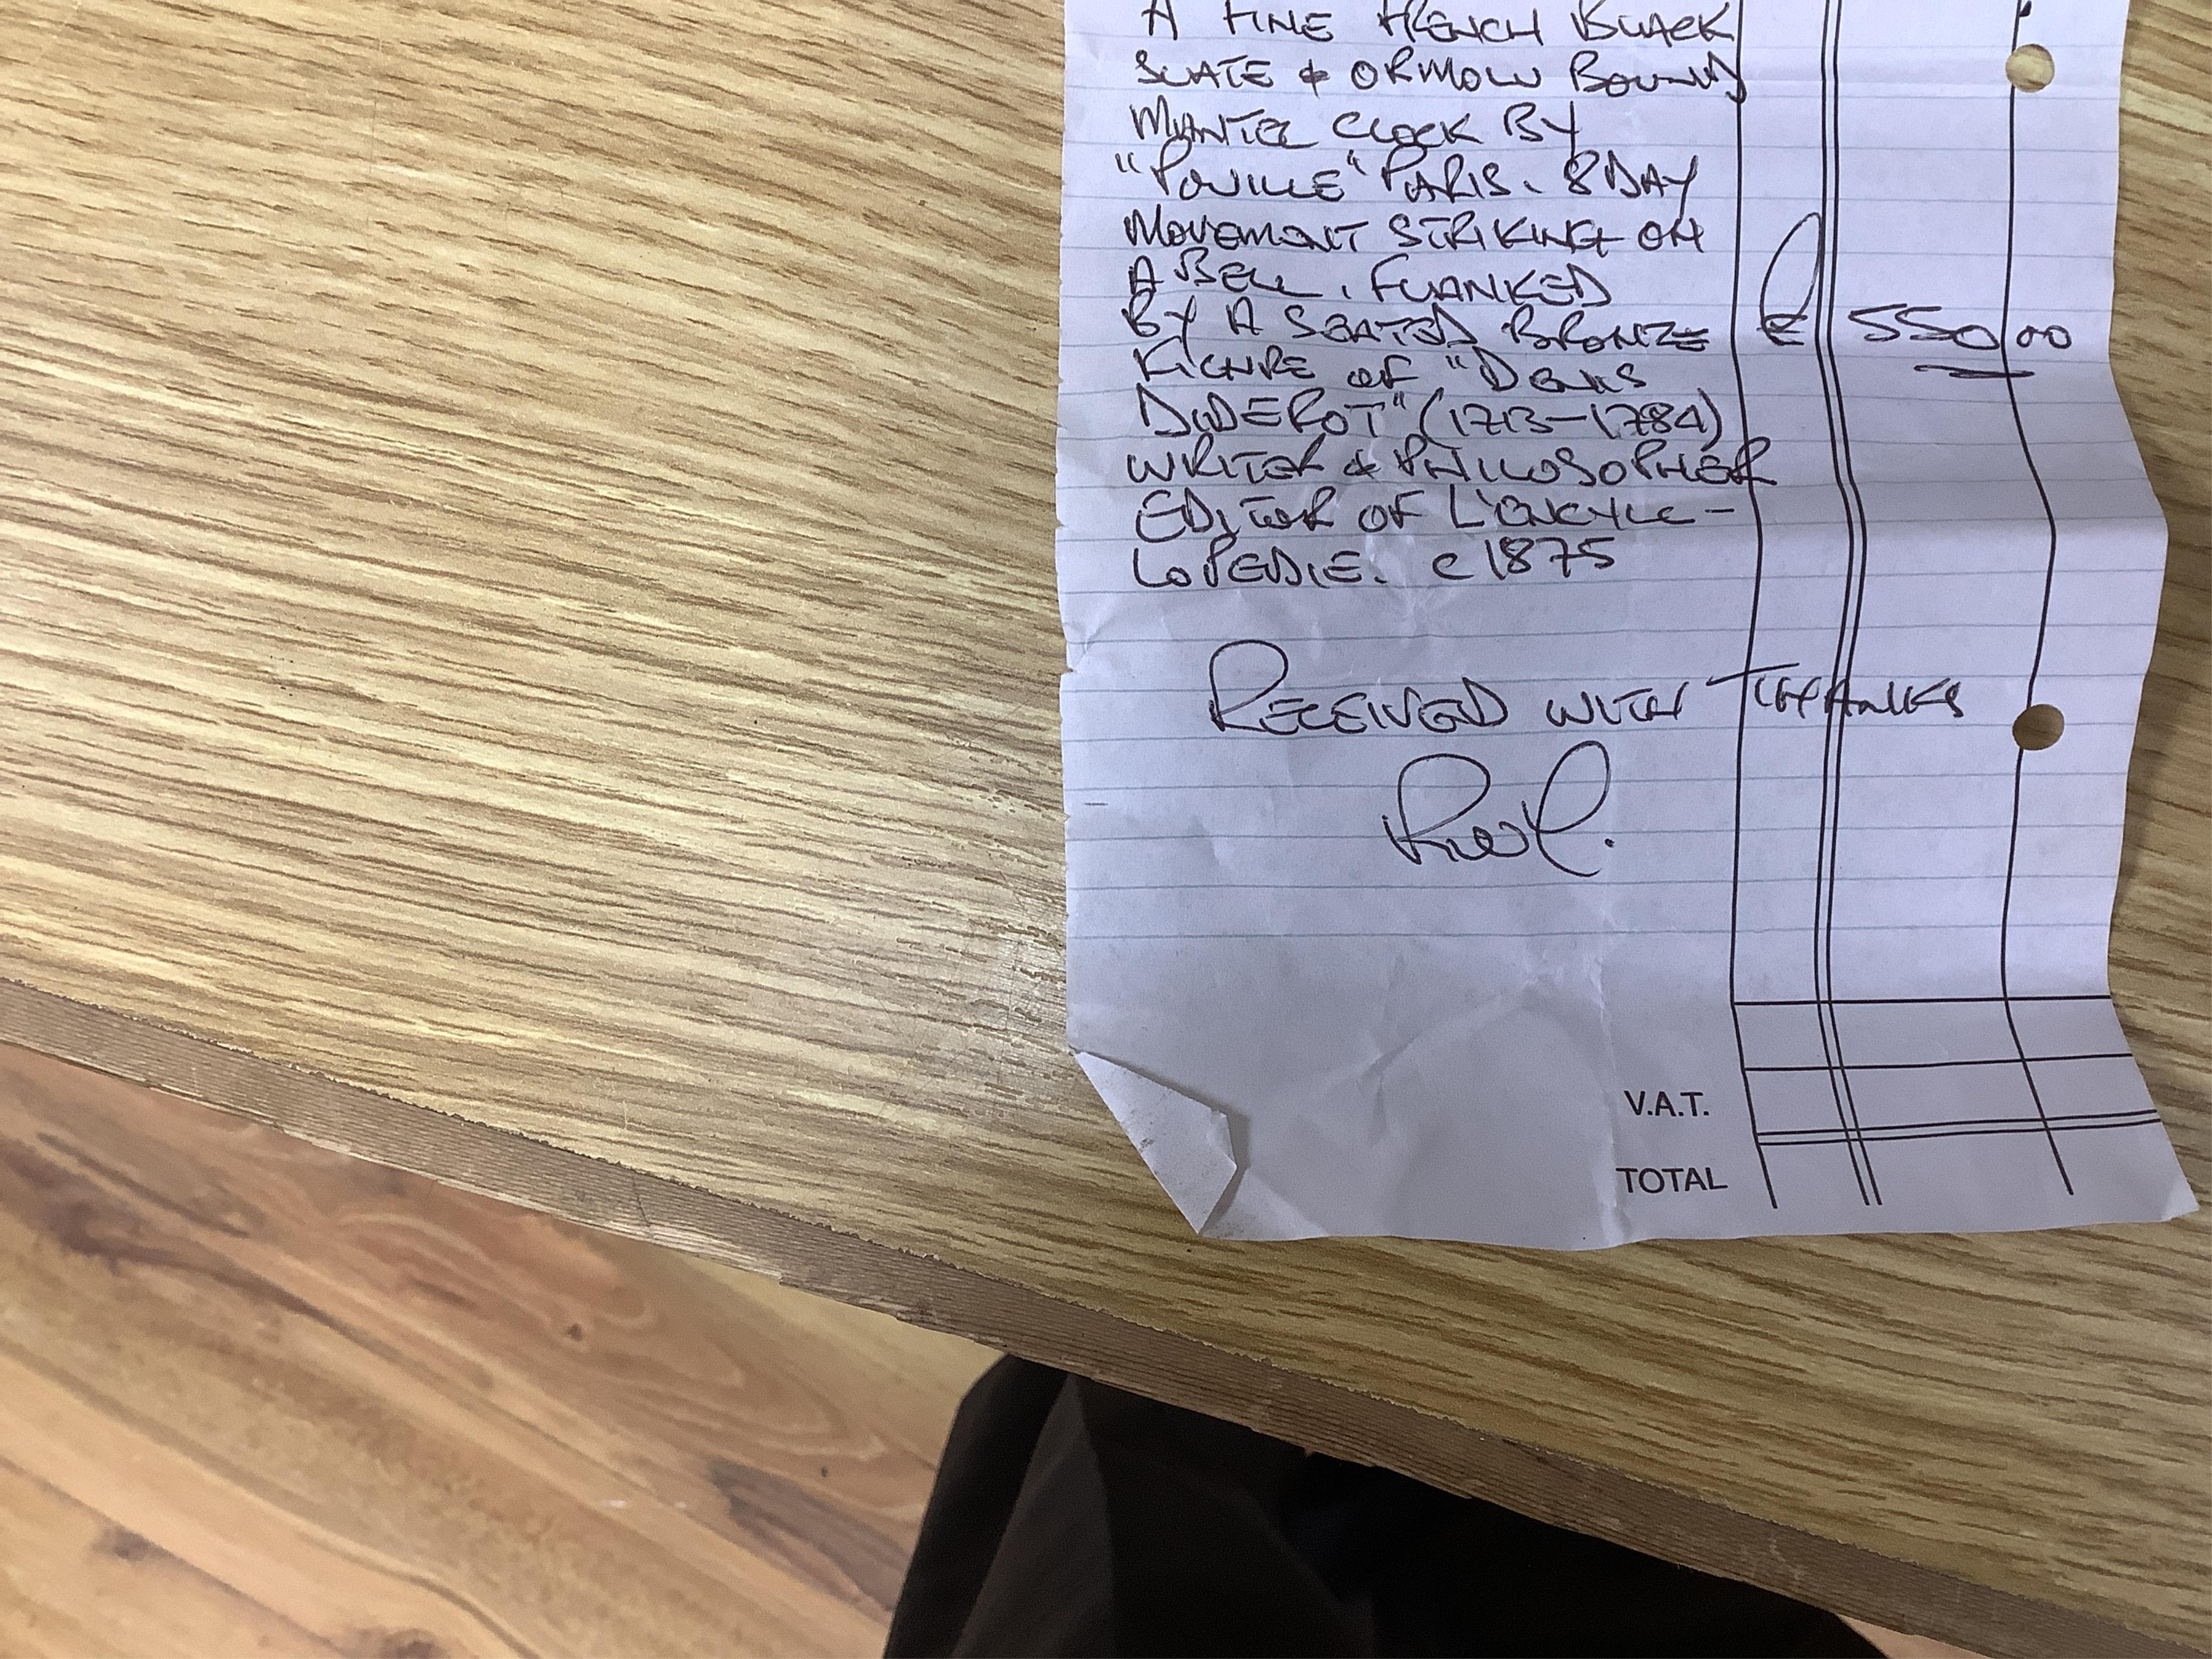 A FINE FRENCH BLACK
SLATE & ORMOLU BOUND
MANTEL CLOCK BY
"POVILLE" PARIS. 8 DAY
MOVEMENT STRIKING ON
A BELL, FLANKED
BY A SEATED BRONZE £ 550 00
FIGURE OF "DENIS
DIDEROT" (1713-1784)
WRITER & PHILOSOPHER
EDITOR OF L'ENCYLC-
LOPEDIE. c1875
RECEIVED WITH THANKS
V.A.T.
TOTAL